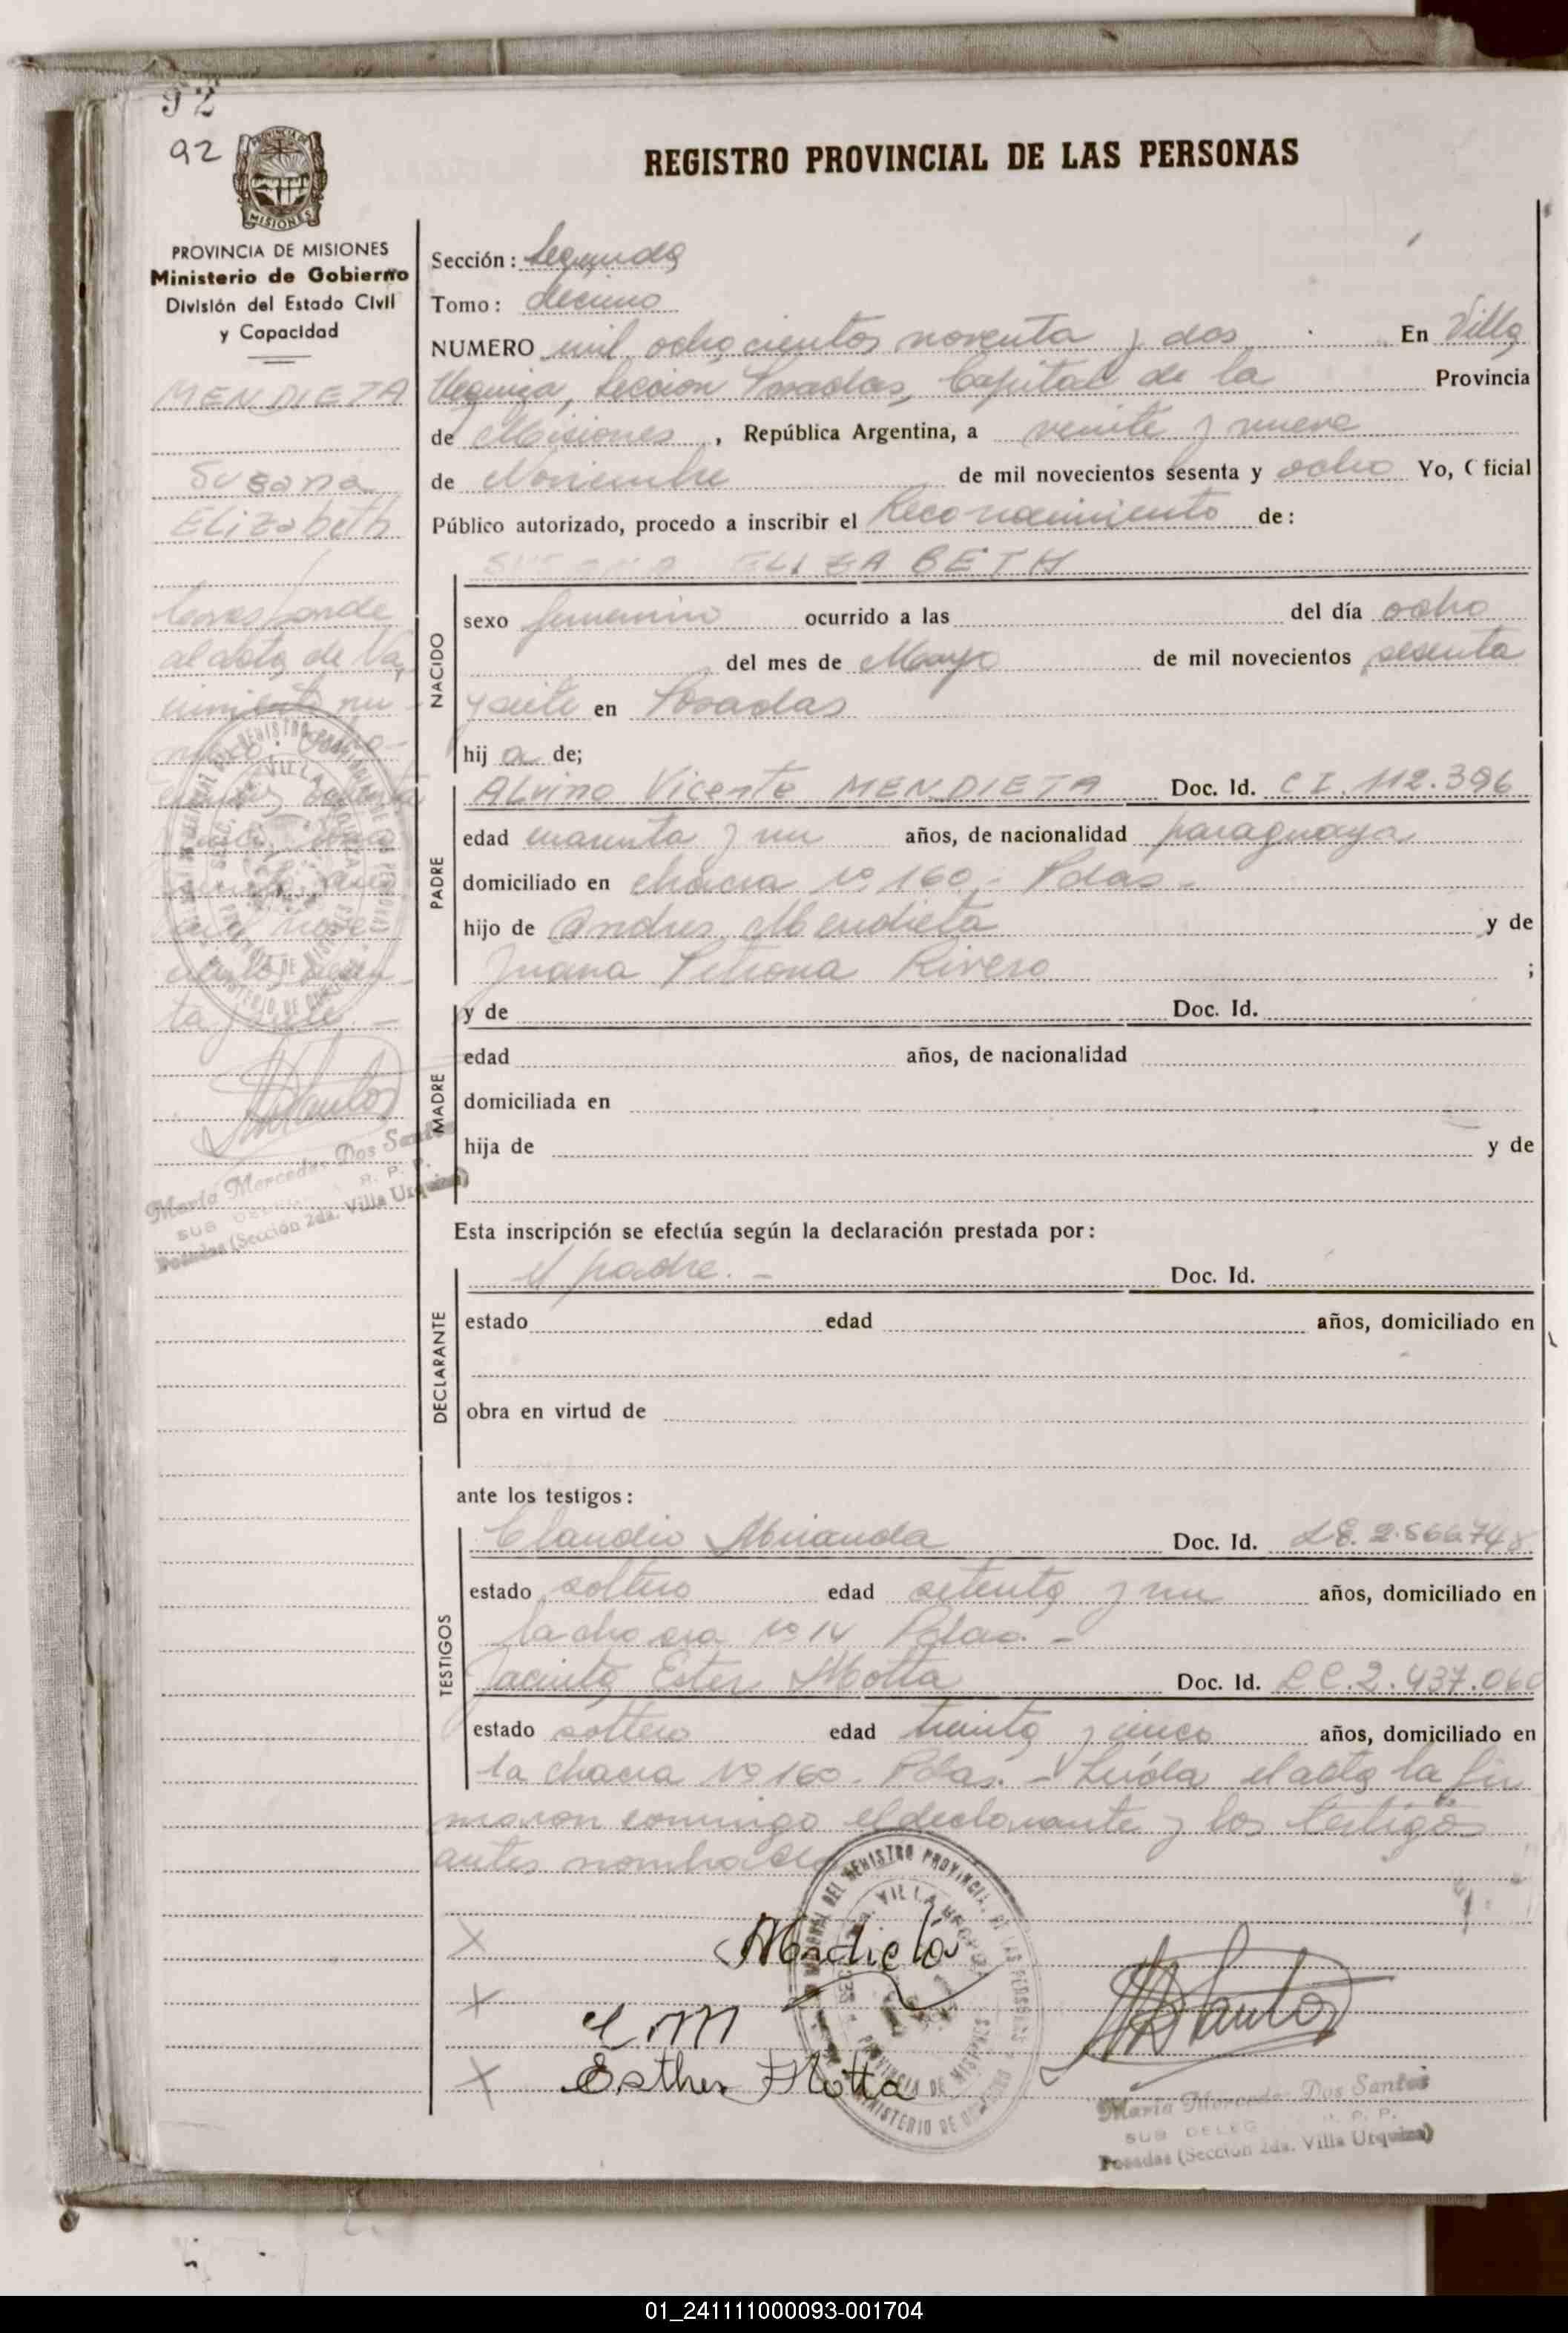 92
92
PROVINCIA DE MISIONES
Ministerio de Gobierno
División del Estado Civil
y Capacidad
MENDIETA
Susana
Elizabeth
Corresponde
al acta de Na
cimiento nu
mero:
ta y siete. -
María Mercedes Dos Santos
SUB DELEG R. P. P.
Posadas (Sección 2da. Villa Urquiza)
REGISTRO PROVINCIAL DE LAS PERSONAS
Sección: Segunda
Tomo: décimo
NUMERO mil ochocientos noventa y dos En Villa
Urquiza, Seccion Posadas, Capital de la Provincia
de Misiones, República Argentina, a veinte y nueve
de Noviembre de mil novecientos sesenta y ocho Yo, Oficial
Público autorizado, procedo a inscribir el Reconocimiento de:
SUSANA ELIZABETH
NACIDO
sexo femenino ocurrido a las del día ocho
del mes de Mayo de mil novecientos sesenta
y siete en Posadas
hij a de;
PADRE
ALvino Vicente MENDIETA Doc. Id. C I. 112.396
edad cuarenta y un años, de nacionalidad paraguaya
domiciliado en chacra nº 160, - Pdas -
hijo de Andres Mendieta y de
Juana Petrona Rivero ;
MADRE
y de Doc. Id.
edad años, de nacionalidad
domiciliada en
hija de y de
Esta inscripción se efectúa según la declaración prestada por:
DECLARANTE
el padre. - Doc. Id.
estado edad años, domiciliado en
obra en virtud de
ante los testigos:
TESTIGOS
Claudio Miranda Doc. Id. L E. 2.566.748
estado soltero edad setenta y un años, domiciliado en
la chacra nº 14 Pdas. -
Jacinta Ester Motta Doc. Id. L C. 2.437.060
estado soltera edad treinta y cinco años, domiciliado en
la chacra Nº 160. Pdas. - Leída el acta la fir
maron conmigo el declarante y los testigos
antes nombrados
Mendieta
C M
Esther Motta
María Mercedes Dos Santos
SUB DELEG R. P. P.
Posadas (Sección 2da. Villa Urquiza)
01_241111000093-001704